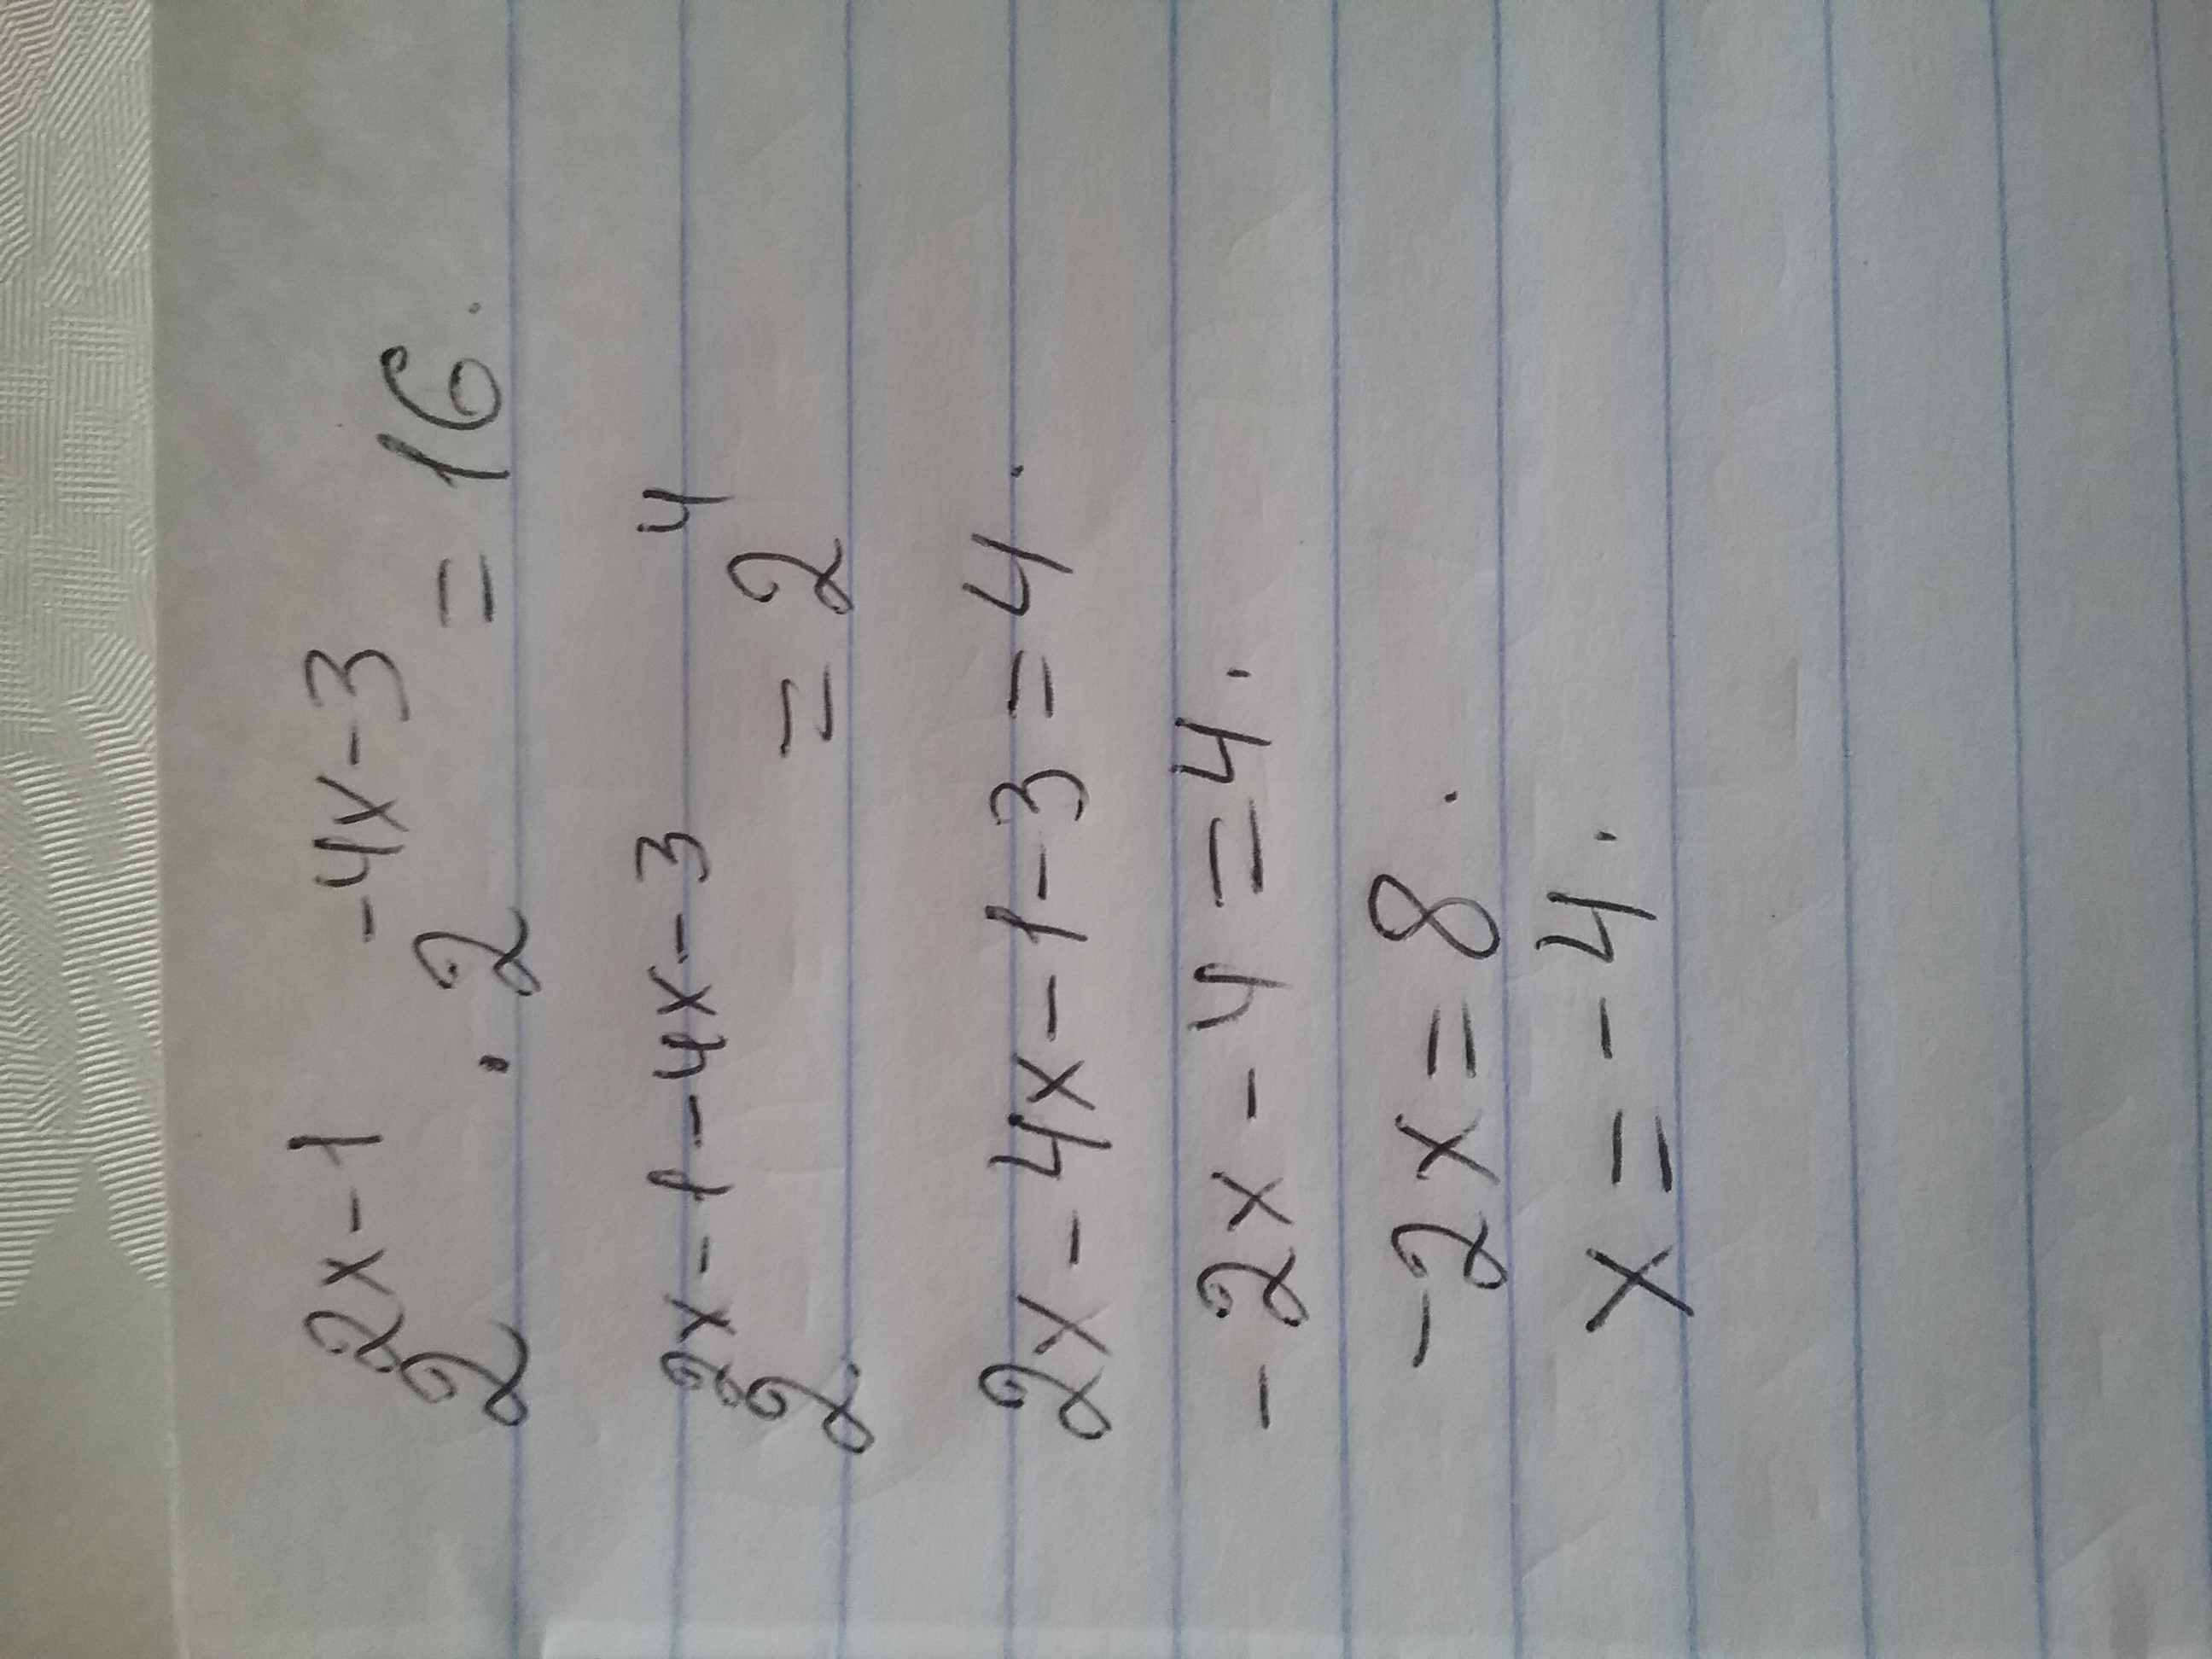 2^{2x-1} · 2^{-4x-3} = 16.
2^{2x-1-4x-3} = 2^4
2x - 4x - 1 - 3 = 4.
-2x - 4 = 4.
-2x = 8.
x = -4.